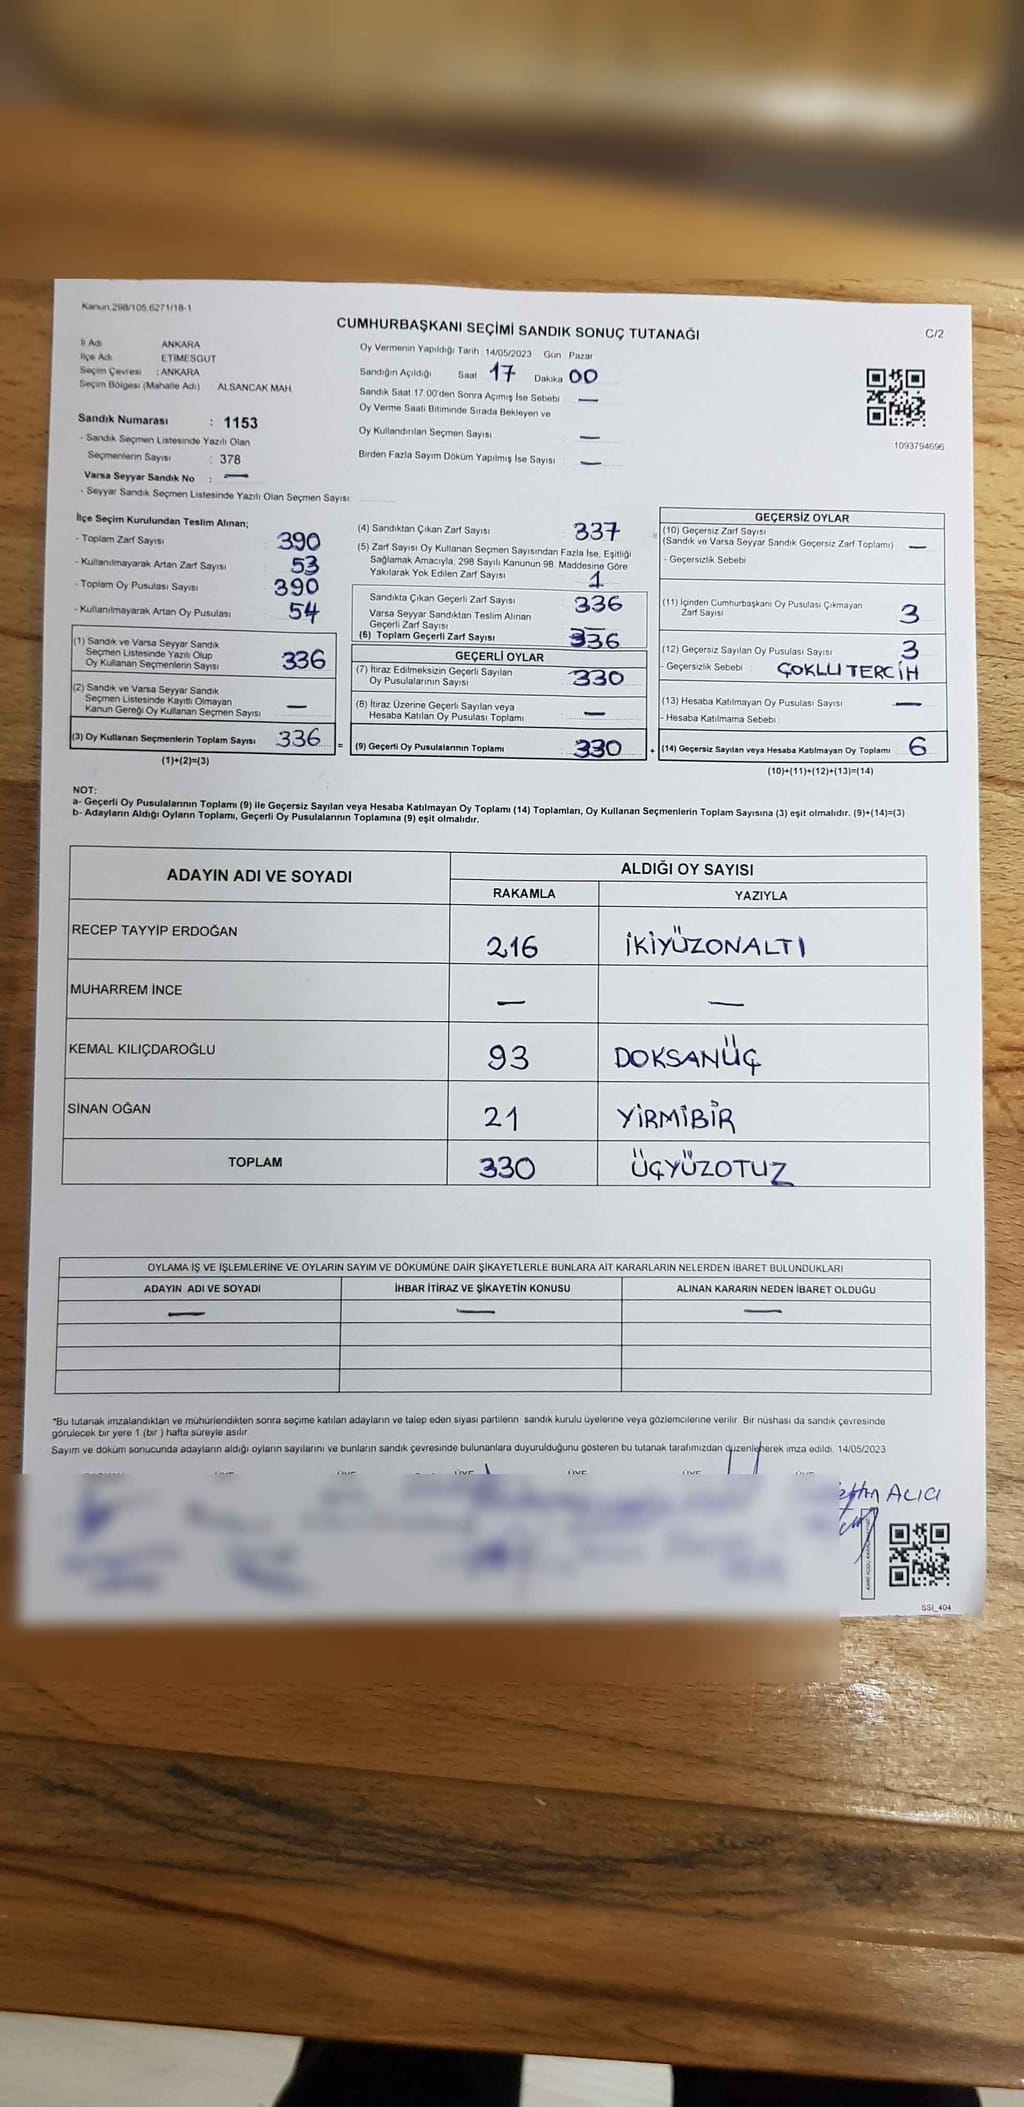 Kanun 298/105,6271/18-1
CUMHURBAŞKANI SEÇİMİ SANDIK SONUÇ TUTANAĞI
C/2
İl Adı ANKARA
İlçe Adı : ETİMESGUT
Seçim Çevresi : ANKARA
Seçim Bölgesi (Mahalle Adı) ALSANCAK MAH
Sandık Numarası : 1153
- Sandık Seçmen Listesinde Yazılı Olan
Seçmenlerin Sayısı : 378
Varsa Seyyar Sandık No : —
- Seyyar Sandık Seçmen Listesinde Yazılı Olan Seçmen Sayısı:
Oy Vermenin Yapıldığı Tarih : 14/05/2023 Gün Pazar
Sandığın Açıldığı Saat 17 Dakika 00
Sandık Saat 17:00'den Sonra Açımış İse Sebebi —
Oy Verme Saati Bitiminde Sırada Bekleyen ve
Oy Kullandırılan Seçmen Sayısı —
Birden Fazla Sayım Döküm Yapılmış İse Sayısı : —
1093794696
İlçe Seçim Kurulundan Teslim Alınan;
- Toplam Zarf Sayısı 390
- Kullanılmayarak Artan Zarf Sayısı 53
- Toplam Oy Pusulası Sayısı 390
- Kullanılmayarak Artan Oy Pusulası 54
(1) Sandık ve Varsa Seyyar Sandık
Seçmen Listesinde Yazılı Olup
Oy Kullanan Seçmenlerin Sayısı 336
(2) Sandık ve Varsa Seyyar Sandık
Seçmen Listesinde Kayıtlı Olmayan
Kanun Gereği Oy Kullanan Seçmen Sayısı —
(3) Oy Kullanan Seçmenlerin Toplam Sayısı 336 =
(1)+(2)=(3)
(4) Sandıktan Çıkan Zarf Sayısı 337
(5) Zarf Sayısı Oy Kullanan Seçmen Sayısından Fazla İse, Eşitliği
Sağlamak Amacıyla, 298 Sayılı Kanunun 98. Maddesine Göre
Yakılarak Yok Edilen Zarf Sayısı 1
Sandıkta Çıkan Geçerli Zarf Sayısı 336
Varsa Seyyar Sandıktan Teslim Alınan
Geçerli Zarf Sayısı —
(6) Toplam Geçerli Zarf Sayısı 336
GEÇERLİ OYLAR
(7) İtiraz Edilmeksizin Geçerli Sayılan
Oy Pusulalarının Sayısı 330
(8) İtiraz Üzerine Geçerli Sayılan veya
Hesaba Katılan Oy Pusulası Toplamı —
(9) Geçerli Oy Pusulalarının Toplamı : 330 +
GEÇERSİZ OYLAR
(10) Geçersiz Zarf Sayısı
(Sandık ve Varsa Seyyar Sandık Geçersiz Zarf Toplamı) —
- Geçersizlik Sebebi
(11) İçinden Cumhurbaşkanı Oy Pusulası Çıkmayan
Zarf Sayısı 3
(12) Geçersiz Sayılan Oy Pusulası Sayısı 3
- Geçersizlik Sebebi : ÇOKLU TERCİH
(13) Hesaba Katılmayan Oy Pusulası Sayısı —
- Hesaba Katılmama Sebebi
(14) Geçersiz Sayılan veya Hesaba Katılmayan Oy Toplamı : 6
(10)+(11)+(12)+(13)=(14)
NOT:
a- Geçerli Oy Pusulalarının Toplamı (9) ile Geçersiz Sayılan veya Hesaba Katılmayan Oy Toplamı (14) Toplamları, Oy Kullanan Seçmenlerin Toplam Sayısına (3) eşit olmalıdır. (9)+(14)=(3)
b- Adayların Aldığı Oyların Toplamı, Geçerli Oy Pusulalarının Toplamına (9) eşit olmalıdır.
ADAYIN ADI VE SOYADI ALDIĞI OY SAYISI
RAKAMLA YAZIYLA
RECEP TAYYİP ERDOĞAN 216 İKİYÜZONALTI
MUHARREM İNCE — —
KEMAL KILIÇDAROĞLU 93 DOKSANÜÇ
SİNAN OĞAN 21 YİRMİBİR
TOPLAM 330 ÜÇYÜZOTUZ
OYLAMA İŞ VE İŞLEMLERİNE VE OYLARIN SAYIM VE DÖKÜMÜNE DAİR ŞİKAYETLERLE BUNLARA AİT KARARLARIN NELERDEN İBARET BULUNDUKLARI
ADAYIN ADI VE SOYADI İHBAR İTİRAZ VE ŞİKAYETİN KONUSU ALINAN KARARIN NEDEN İBARET OLDUĞU
— — —
*Bu tutanak imzalandıktan ve mühürlendikten sonra seçime katılan adayların ve talep eden siyasi partilerin sandık kurulu üyelerine veya gözlemcilerine verilir. Bir nüshası da sandık çevresinde
görülecek bir yere 1 (bir ) hafta süreyle asılır.
Sayım ve döküm sonucunda adayların aldığı oyların sayılarını ve bunların sandık çevresinde bulunanlara duyurulduğunu gösteren bu tutanak tarafımızdan düzenlenerek imza edildi. 14/05/2023
ALICI
SSI_404